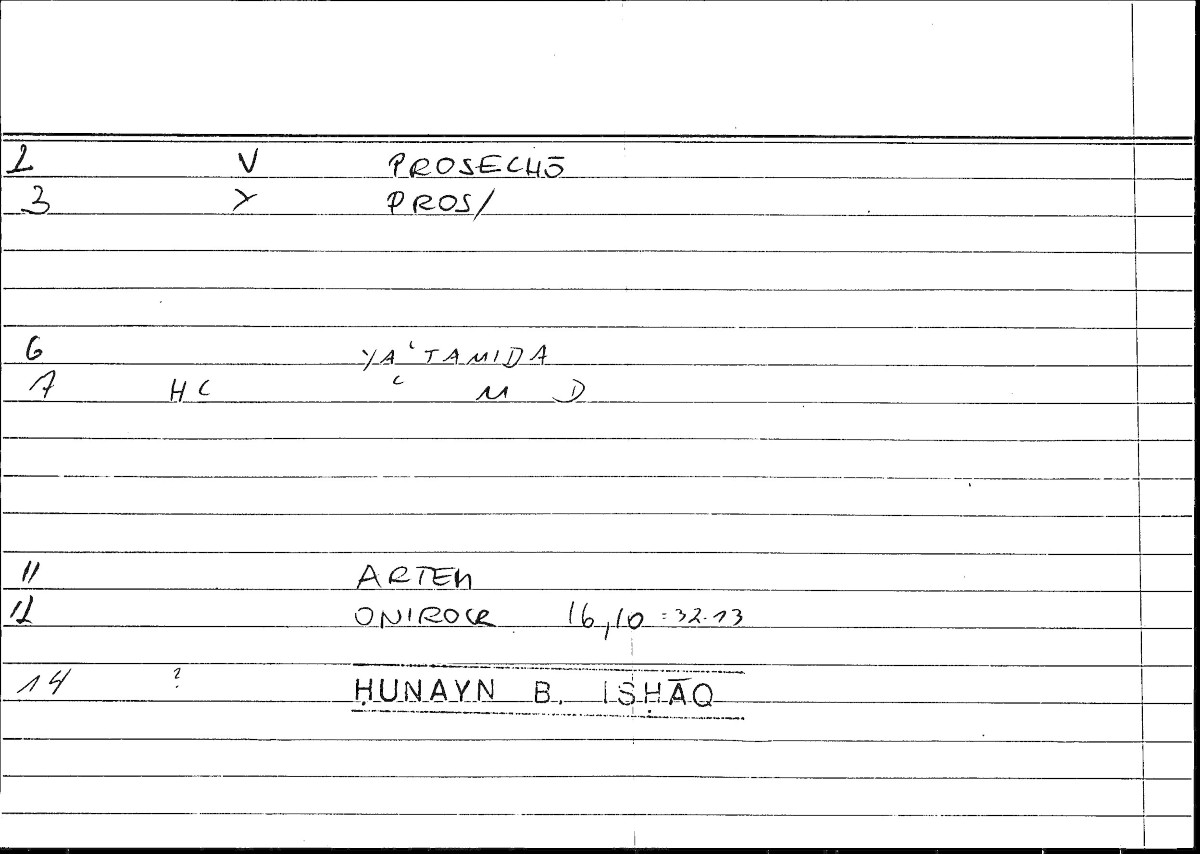 2 V PROSECHŌ
3 > PROS/
6 YAʿTAMIDA
7 HC ʿ M D
11 ARTEM
12 ONIROCR 16,10 = 32.13
14 ? ḤUNAYN B. ISḤĀQ